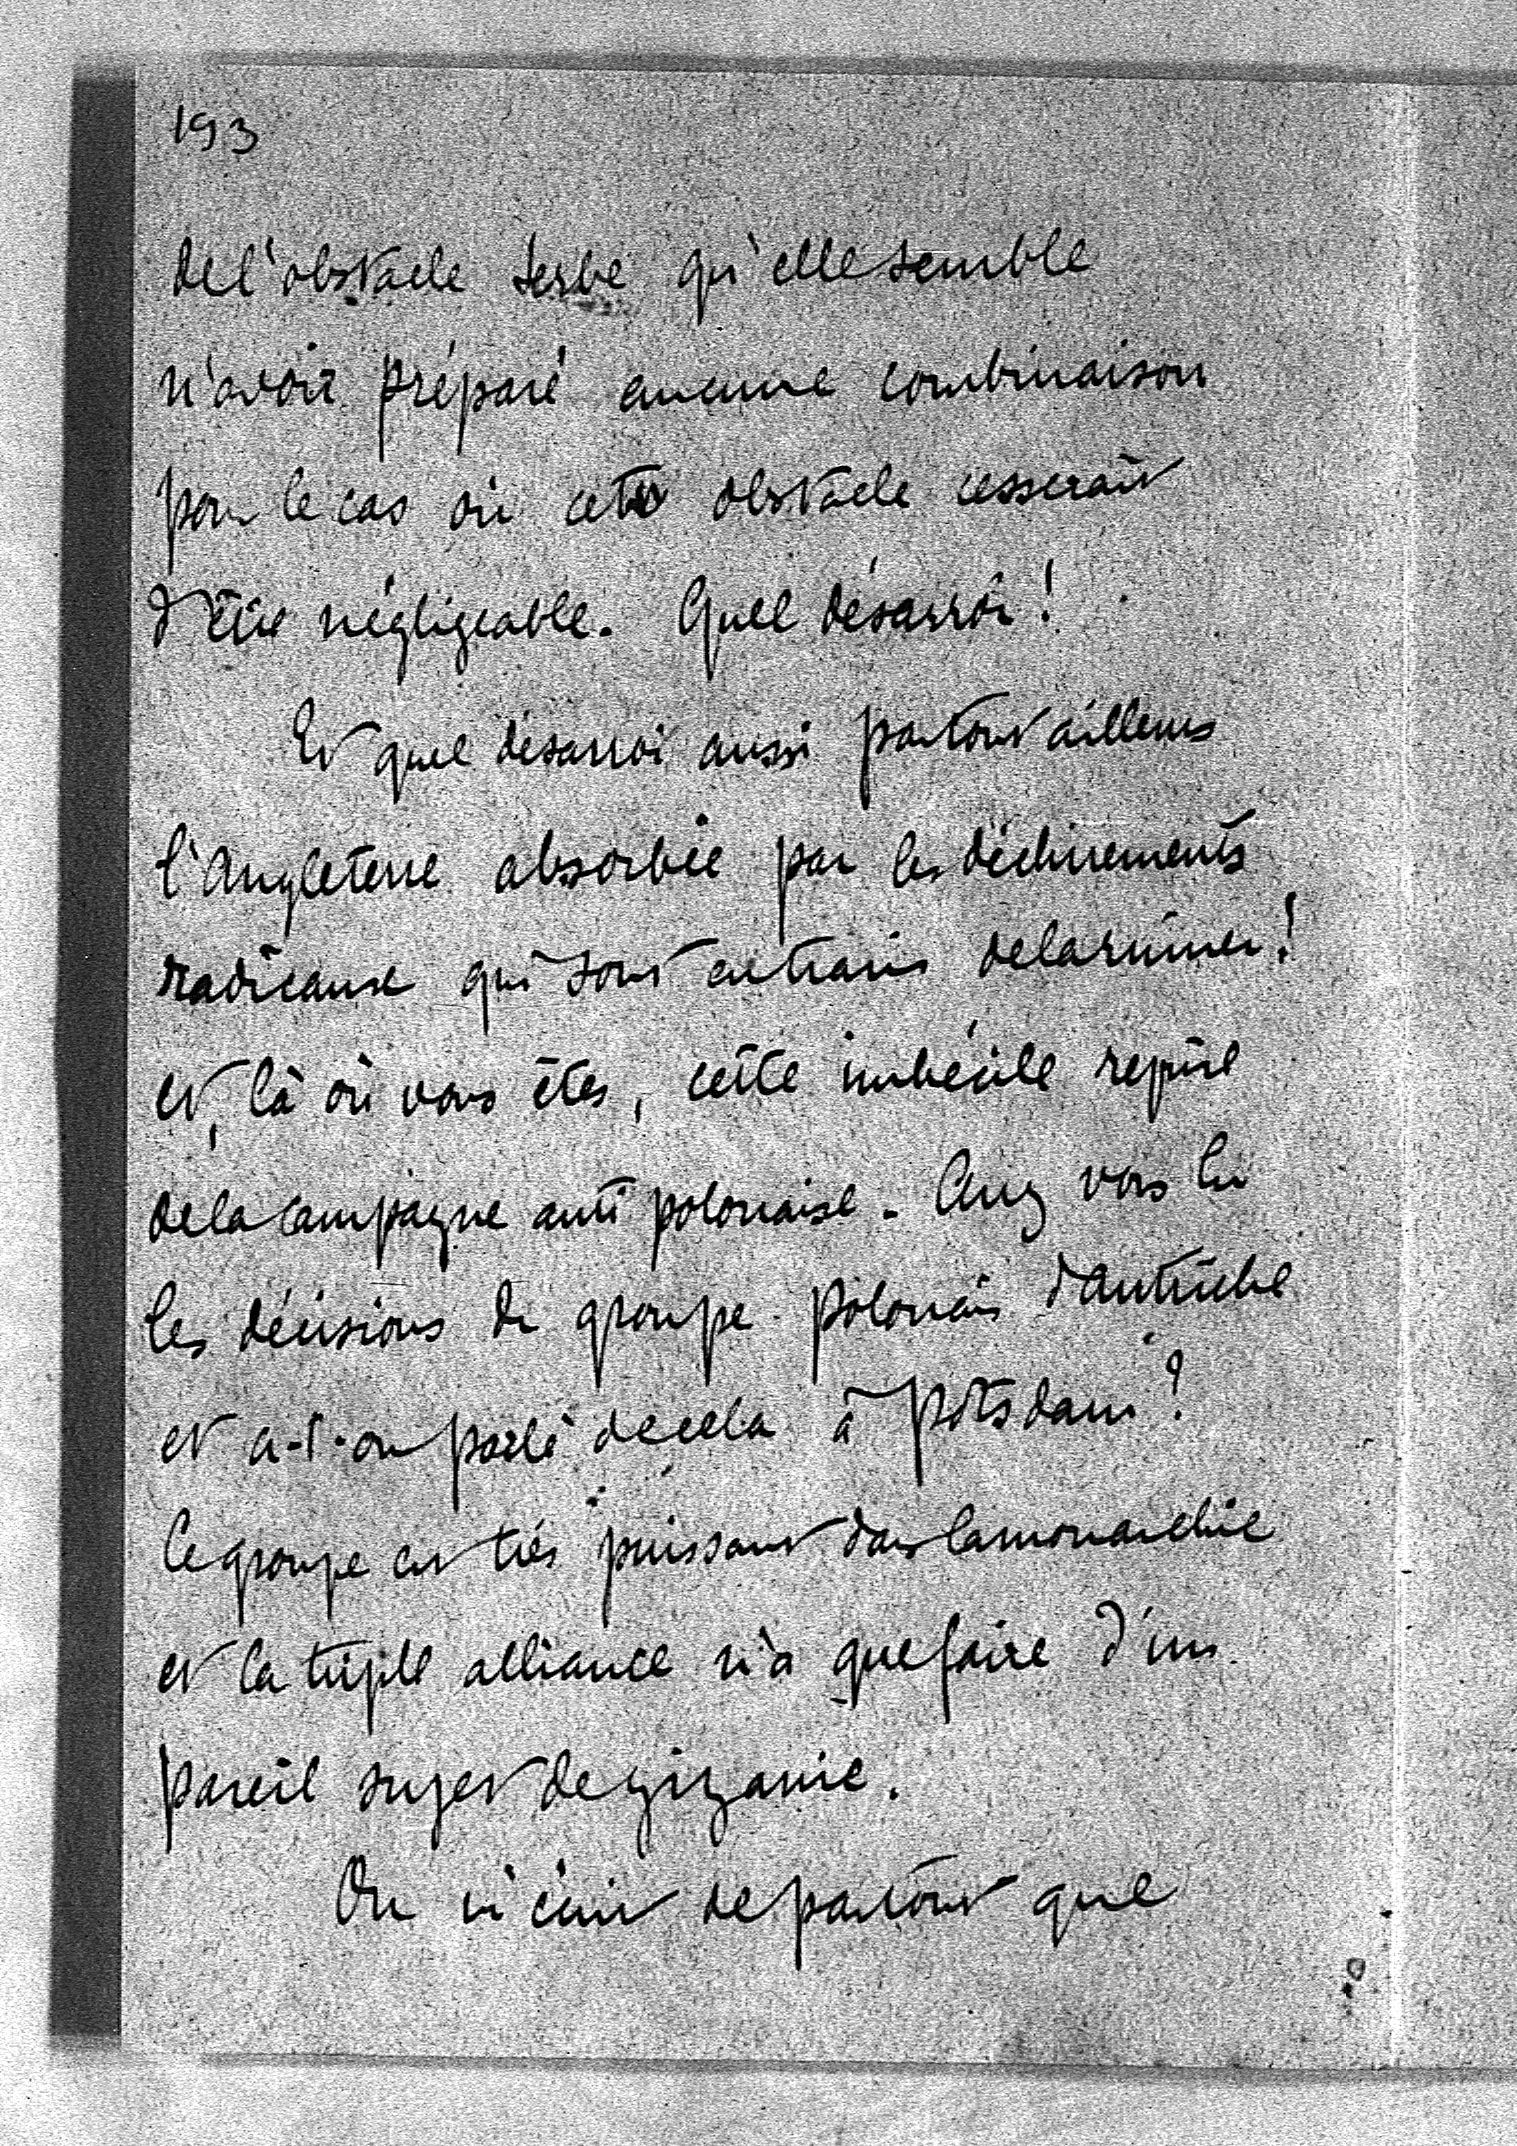 193
de l'obstacle serbe qu'elle semble
n'avoir préparé aucune combinaison
pour le cas où cet obstacle cesserait
d'être négligeable. Quel désarroi!
Et quel désarroi aussi partout ailleurs
l'Angleterre absorbée par les déchirements
radicaux qui sont en train de la ruiner!
et, là où vous êtes, cette imbécile reprise
de la campagne anti polonaise. Avez vous lu
les décisions du groupe polonais d'Autriche
et a-t-on parlé de cela à Potsdam?
Ce groupe est très puissant dans la monarchie
et la triple alliance n'a que faire d'un
pareil sujet de zizanie.
On m'écrit de partout que